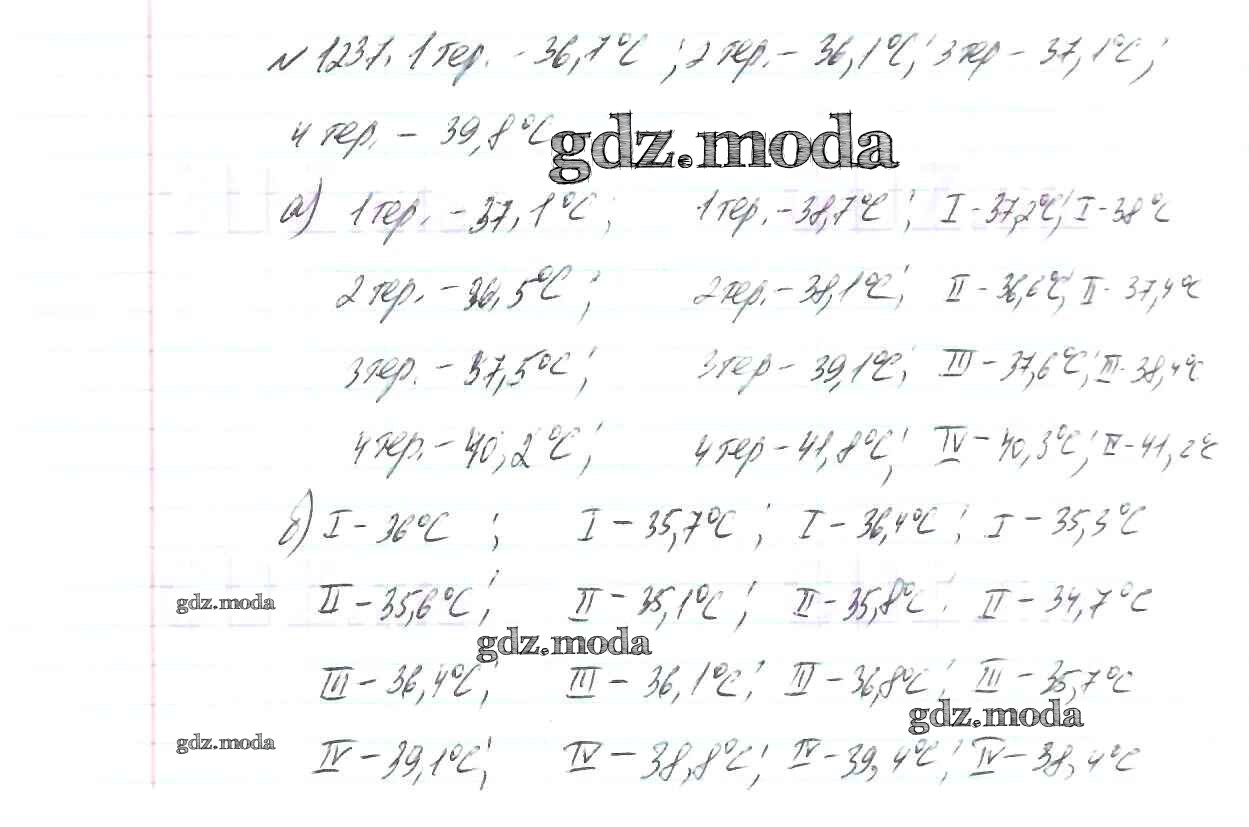 № 1237. 1 тер. - 36,7°C ; 2 тер. - 36,1°C ; 3 тер - 37,1°C ;
4 тер. - 39,8°C
gdz.moda
а) 1 тер. - 37,1°C ; 1 тер. - 38,7°C ; I - 37,2°C ; I - 38°C
2 тер. - 36,5°C ; 2 тер. - 38,1°C ; II - 36,6°C ; II - 37,4°C
3 тер. - 37,5°C ; 3 тер - 39,1°C ; III - 37,6°C ; III - 38,4°C
4 тер. - 40,2°C ; 4 тер - 41,8°C ; IV - 40,3°C ; IV - 41,2°C
б) I - 36°C ; I - 35,7°C ; I - 36,4°C ; I - 35,3°C
gdz.moda II - 35,6°C ; II - 35,1°C ; II - 35,8°C . II - 34,7°C
gdz.moda
III - 36,4°C ; III - 36,1°C ; III - 36,8°C ; III - 35,7°C
gdz.moda
gdz.moda IV - 39,1°C ; IV - 38,8°C ; IV - 39,4°C ; IV - 38,4°C